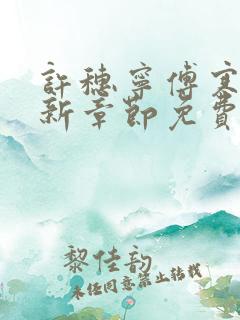 許穗寧傅寒
新章節免費
黎佳韵
未经同意禁止转载